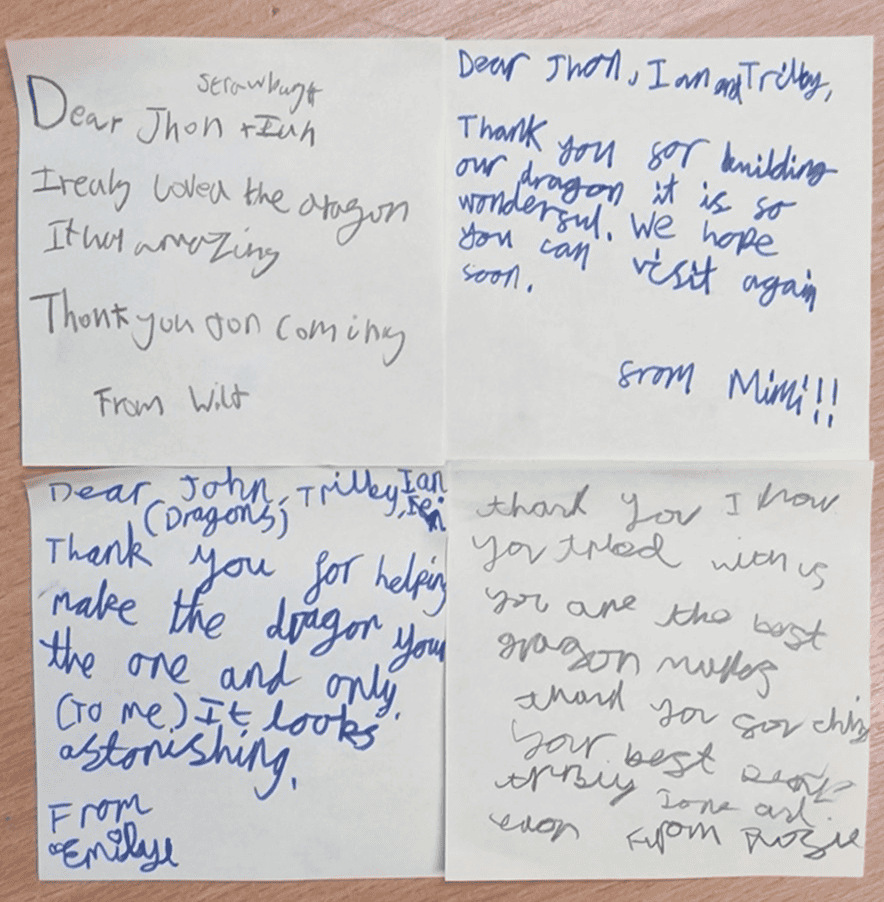 Dear Jhon +
I realy loved the dragon
It was amazing
Thank you for coming
From Will
Dear Jhon, Ian and Trilby,
Thank you for building
our dragon it is so
wonderful. We hope
you can visit again
soon.
from Mimi!!
Dear John, Trilby, Ian
(Dragons)
Thank you for helping
make the dragon your
the one and only
(To me) It looks
astonishing.
From
Emilye
thank you I know
you tried with us
you are the best
dragon
thank you for
your best

From Rosie